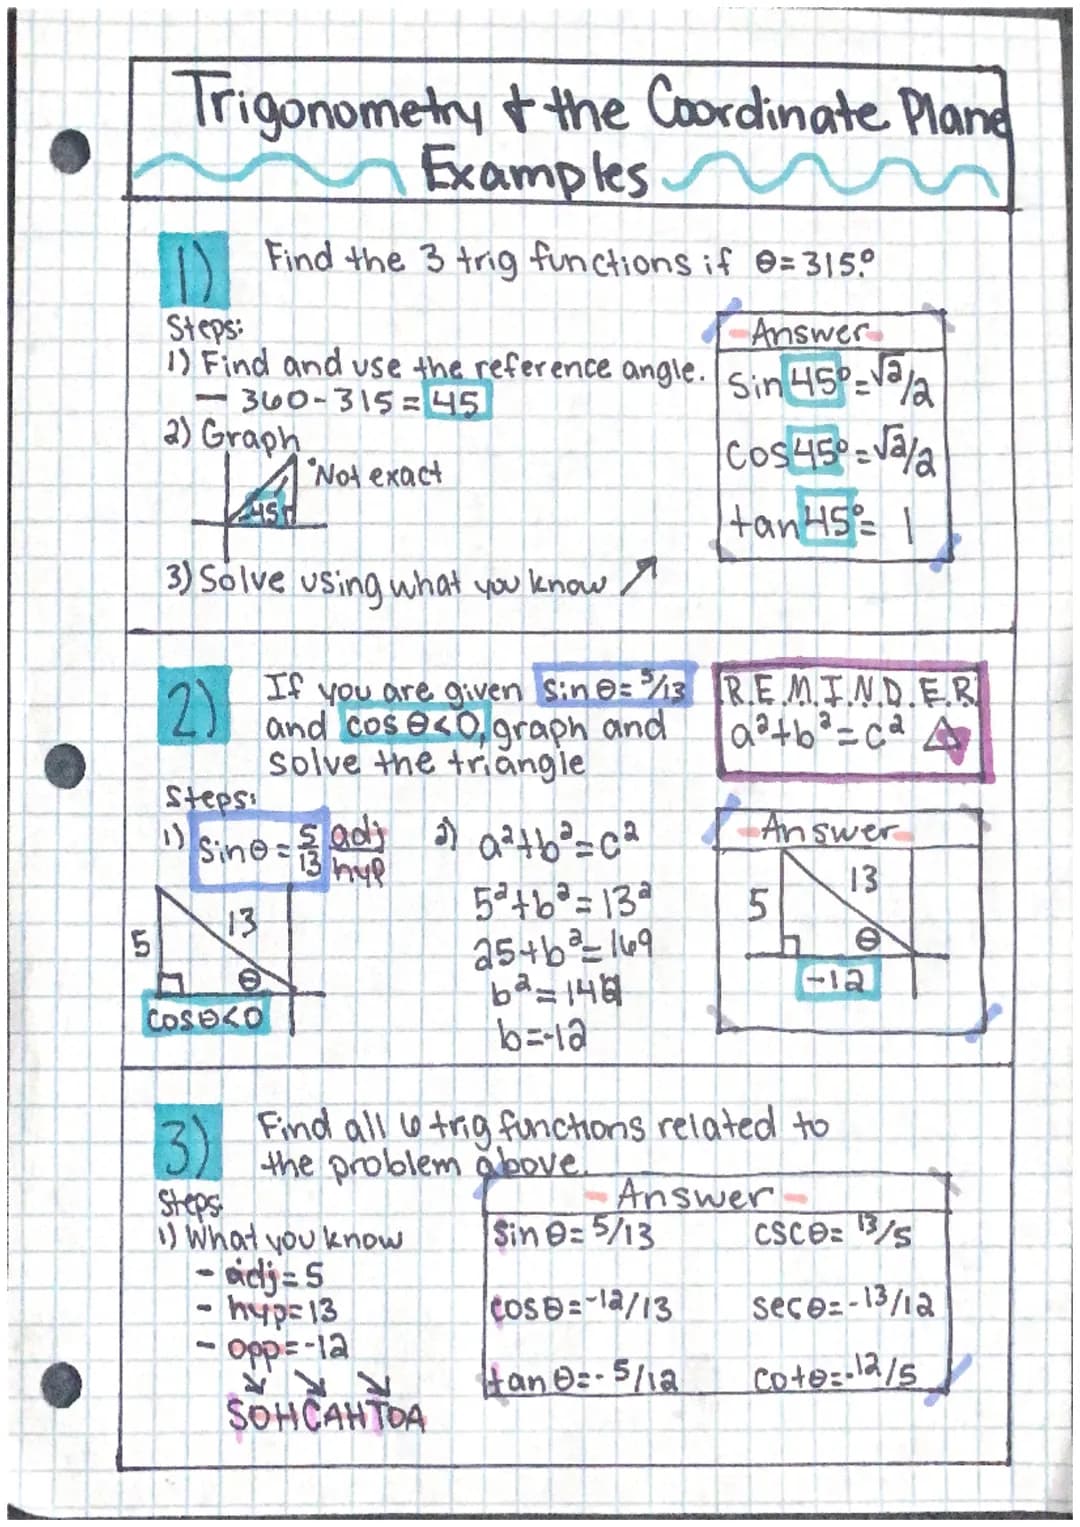 Trigonometry & the Coordinate Plane
Examples
1) Find the 3 trig functions if θ=315°
Steps:
1) Find and use the reference angle.
— 360-315=45
2) Graph
*Not exact
45
3) Solve using what you know ↗
-Answer-
sin45°=√2/2
cos45°=√2/2
tan45°= 1
2) If you are given sinθ=5/13
and cosθ<0, graph and
solve the triangle
R.E.M.I.N.D.E.R
a²+b²=c²
Steps:
1) sinθ=5/13 adj/hyp
5
13
θ
cosθ<0
2) a²+b²=c²
5²+b²=13²
25+b²=169
b²=144
b=-12
-Answer-
5
13
θ
-12
3) Find all 6 trig functions related to
the problem above.
Steps:
1) What you know
- adj=5
- hyp=13
- opp=-12
↓ ↘ ↘
SOHCAHTOA
-Answer-
sinθ=5/13 cscθ=13/5
cosθ=-12/13 secθ=-13/12
tanθ=-5/12 cotθ=-12/5